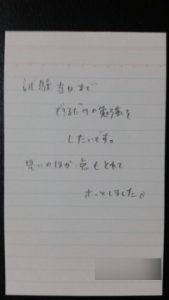 試験当日まで
できるだけの勉強を
したいです。
思いのほか点もとれて
ホッとしました。